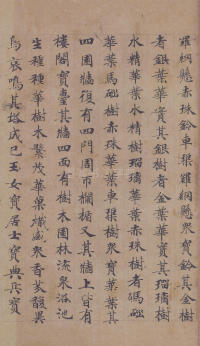 羅網懸赤珠鈴車渠羅網懸衆寶鈴其金樹
者銀葉華實其銀樹者金葉華實其瑠璃樹
水精華葉水精樹瑠璃華葉赤珠樹者馬碯
華葉馬碯樹赤珠華葉車渠樹衆寶華葉其
四園牆復有四門周帀欄楯又其牆上皆有
樓閣寶臺其牆四面有樹木園林流泉浴池
生種種華樹木繁茂華菓熾盛衆香芬馥異
鳥哀鳴其塔成已玉女寶居士寶典兵寶